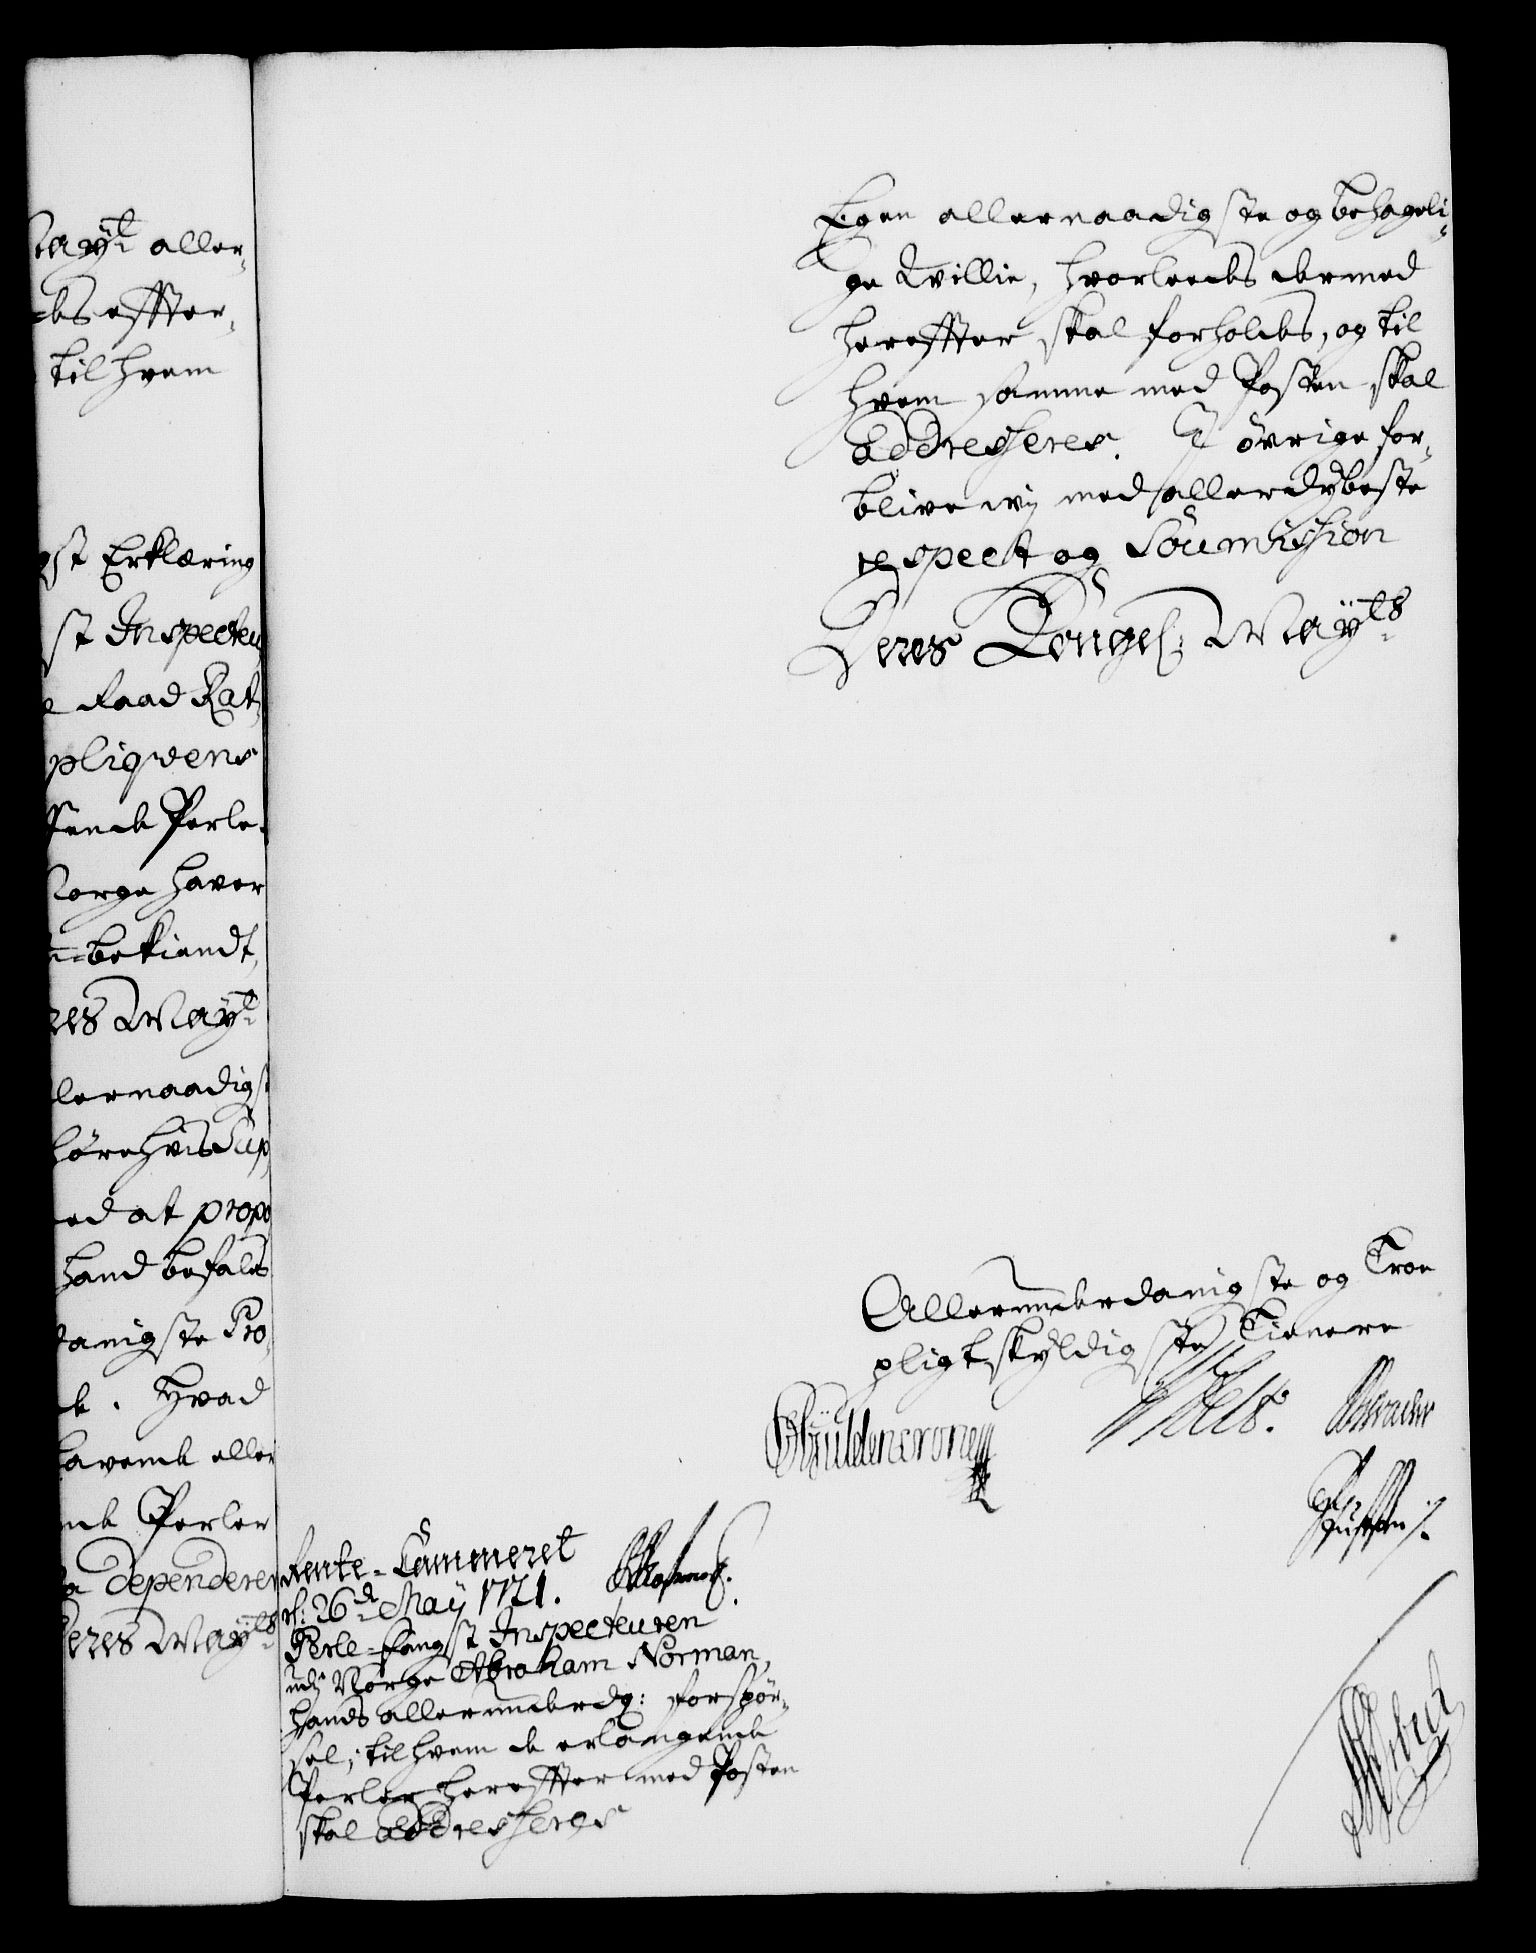 May.t aller-
-des effter-
til hvem
gst Erklæring
st Inspecteu
e Raad Rat-
pliqvens
Perle-
Norge haver
bekiendt,
res May.t
lernaadigst
høre hvis Sup
ed at propo
hand befales
danigste Pro-
de. Hvad
havende eller
nde Perler
dependerer
Deres May.ts
Egen allernaadigste og behageli-
ge Villie, hvorledes dermed
hereffter skal forholdes, og til
hvem samme med Posten skal
addresseres. I øvrige for-
blive wij med allerdybeste
respect og Soumission
Deres Kongel: May.ts
Allerunderdanigste og Troe
pligtskyldigste Tienere
Güldencrone
Rente-Cammeret
d: 26.de May 1721.
Perle-fangst Inspecteuren
udj Norge Abraham Norman,
hands allerunderdg: forspør-
sel, til hvem de erlangende
Perler hereffter med Posten
skal addresseres